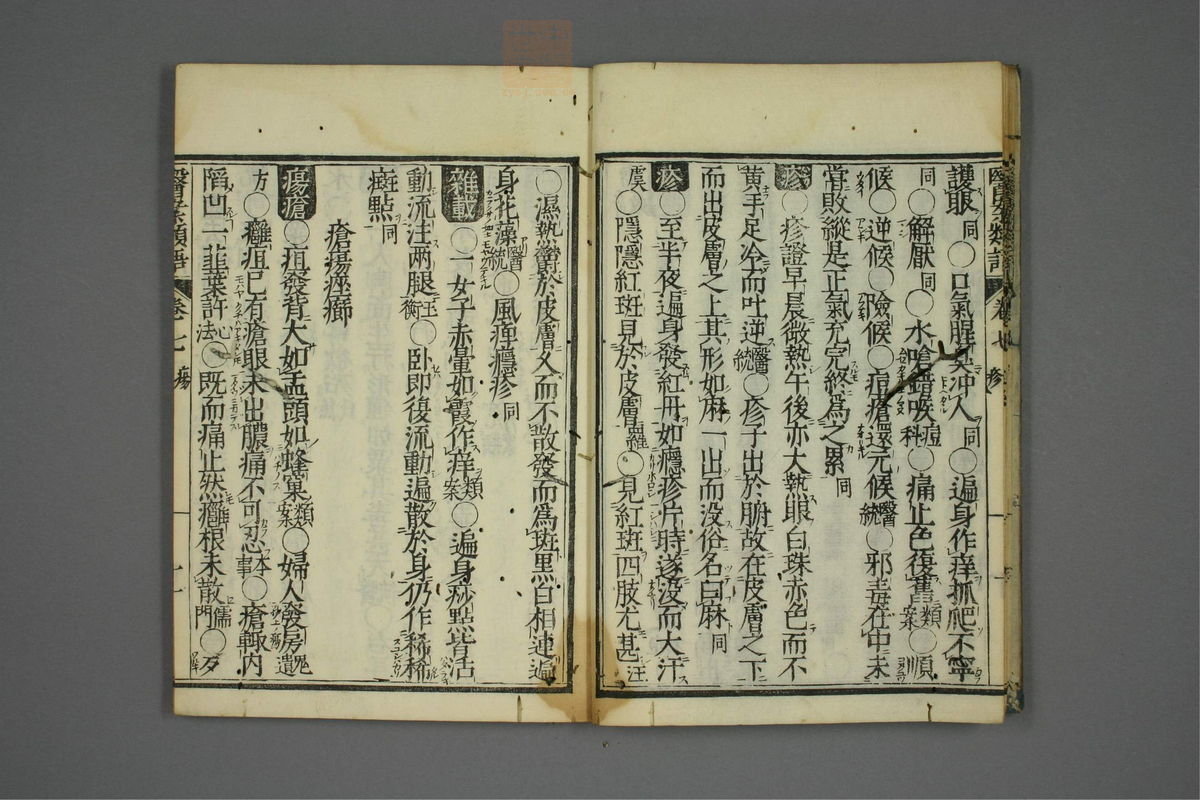 護眼同○口氣腥臭冲人同○遍身作痒抓爬不寧
同○解厭同○水嗆錯喉痘科○痛止色復舊類案○順
候○逆候○險候○痘瘡還元候醫統○邪毒在中未
嘗敗縱是正氣充完終爲之累同
疹○疹證早晨微熱午後亦大熱眼白珠赤色而不
黄手足冷而吐逆醫統○疹子出於腑故在皮膚之下
而出皮膚之上其形如麻一出而没俗名曰麻同
疹○至半夜遍身發紅冊如癮疹片時遂没而大汗
虞○隱隱紅斑見於皮膚羅○見紅斑四肢尤甚汪
○濕熱鬱於皮膚久而不散發而爲斑黒白相連遍
身花藻醫統○風痺癮疹同
雜載○一女子赤暈如霞作痒類案○遍身痧點皆活
動流注两腿玉衡○卧即復流動遍散於身仍作稀稀
斑點同
瘡瘍瘂癤
瘍瘡○疽發背大如盂頭如蜂窠類案○婦人發房遺
方○癰疽已有瘡眼未出膿痛不可忍本事○瘡輙内
陷凹一韮葉許心法○既而痛止然癰根未散儒門○歹